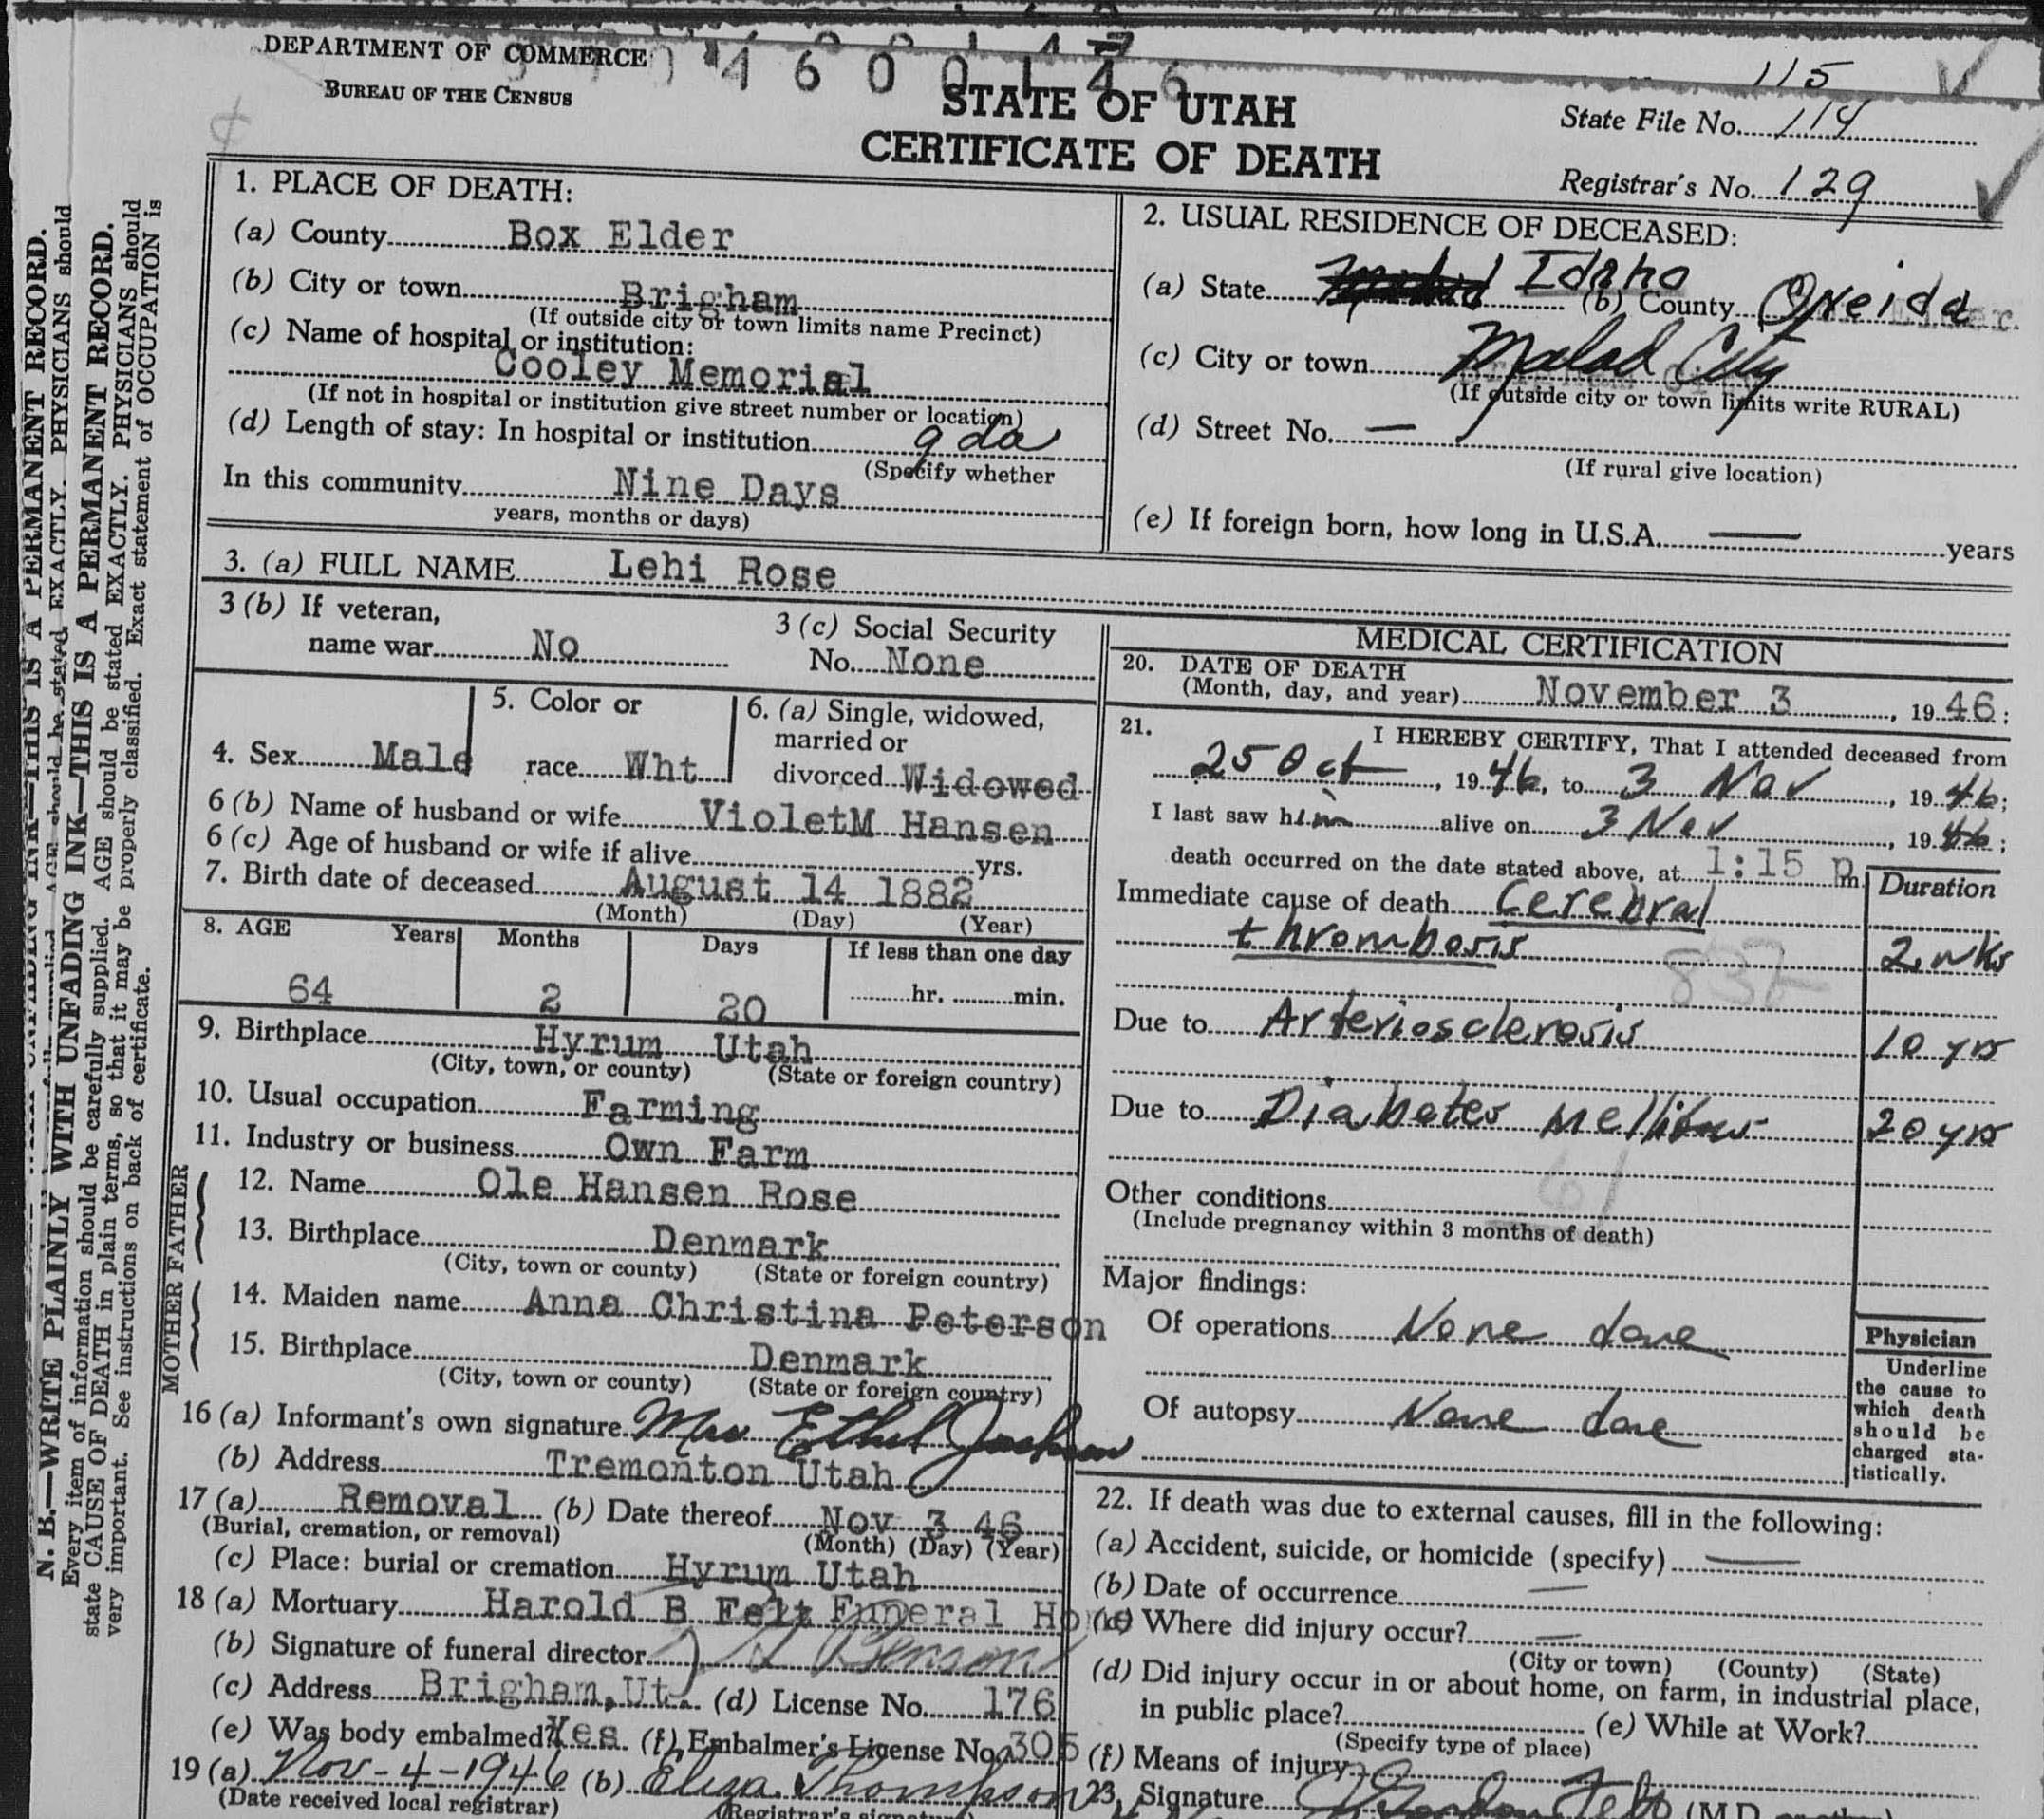 DEPARTMENT OF COMMERCE
BUREAU OF THE CENSUS
4 6 0 0 1 4 6
STATE OF UTAH
CERTIFICATE OF DEATH
115
State File No. 114
Registrar's No. 129
1. PLACE OF DEATH:
(a) County Box Elder
(b) City or town Brigham
(If outside city or town limits name Precinct)
(c) Name of hospital or institution:
Cooley Memorial
(If not in hospital or institution give street number or location)
(d) Length of stay: In hospital or institution 9 da
(Specify whether
In this community Nine Days
years, months or days)
2. USUAL RESIDENCE OF DECEASED:
(a) State Idaho (b) County Oneida
(c) City or town Malad City
(If outside city or town limits write RURAL)
(d) Street No. —
(If rural give location)
(e) If foreign born, how long in U.S.A. — years
3. (a) FULL NAME Lehi Rose
3 (b) If veteran,
name war No
3 (c) Social Security
No. None
4. Sex Male
5. Color or
race Wht
6. (a) Single, widowed,
married or
divorced Widowed
6 (b) Name of husband or wife VioletM Hansen
6 (c) Age of husband or wife if alive yrs.
7. Birth date of deceased August 14 1882
(Month) (Day) (Year)
8. AGE Years Months Days If less than one day
64 2 20 hr. min.
9. Birthplace Hyrum Utah
(City, town, or county) (State or foreign country)
10. Usual occupation Farming
11. Industry or business Own Farm
FATHER
12. Name Ole Hansen Rose
13. Birthplace Denmark
(City, town or county) (State or foreign country)
MOTHER
14. Maiden name Anna Christina Peterson
15. Birthplace Denmark
(City, town or county) (State or foreign country)
16 (a) Informant's own signature Mrs Ethel Jackson
(b) Address Tremonton Utah
17 (a) Removal (b) Date thereof Nov 3 46
(Burial, cremation, or removal) (Month) (Day) (Year)
(c) Place: burial or cremation Hyrum Utah
18 (a) Mortuary Harold B Felt Funeral Home
(b) Signature of funeral director Benson
(c) Address Brigham, Ut. (d) License No. 176
(e) Was body embalmed? Yes (f) Embalmer's License No. 305
19 (a) Nov-4-1946 (b) Eliza Thompson
(Date received local registrar) (Registrar's signature)
MEDICAL CERTIFICATION
20. DATE OF DEATH
(Month, day, and year) November 3, 1946;
21. I HEREBY CERTIFY, That I attended deceased from
25 Oct, 1946, to 3 Nov, 1946;
I last saw him alive on 3 Nov, 1946;
death occurred on the date stated above, at 1:15 p m.
Duration
Immediate cause of death Cerebral
thrombosis 2 wks
Due to Arteriosclerosis 10 yrs
Due to Diabetes Mellitus 20 yrs
61
Other conditions
(Include pregnancy within 3 months of death)
Major findings:
Of operations None done
Of autopsy None done
Physician
Underline
the cause to
which death
should be
charged sta-
tistically.
22. If death was due to external causes, fill in the following:
(a) Accident, suicide, or homicide (specify) —
(b) Date of occurrence —
(c) Where did injury occur? —
(City or town) (County) (State)
(d) Did injury occur in or about home, on farm, in industrial place,
in public place? (e) While at Work?
(Specify type of place)
(f) Means of injury
23. Signature Felt (M.D.
N. B.—WRITE PLAINLY WITH UNFADING INK—THIS IS A PERMANENT RECORD.
Every item of information should be carefully supplied. AGE should be stated EXACTLY. PHYSICIANS should
state CAUSE OF DEATH in plain terms, so that it may be properly classified. Exact statement of OCCUPATION is
very important. See instructions on back of certificate.